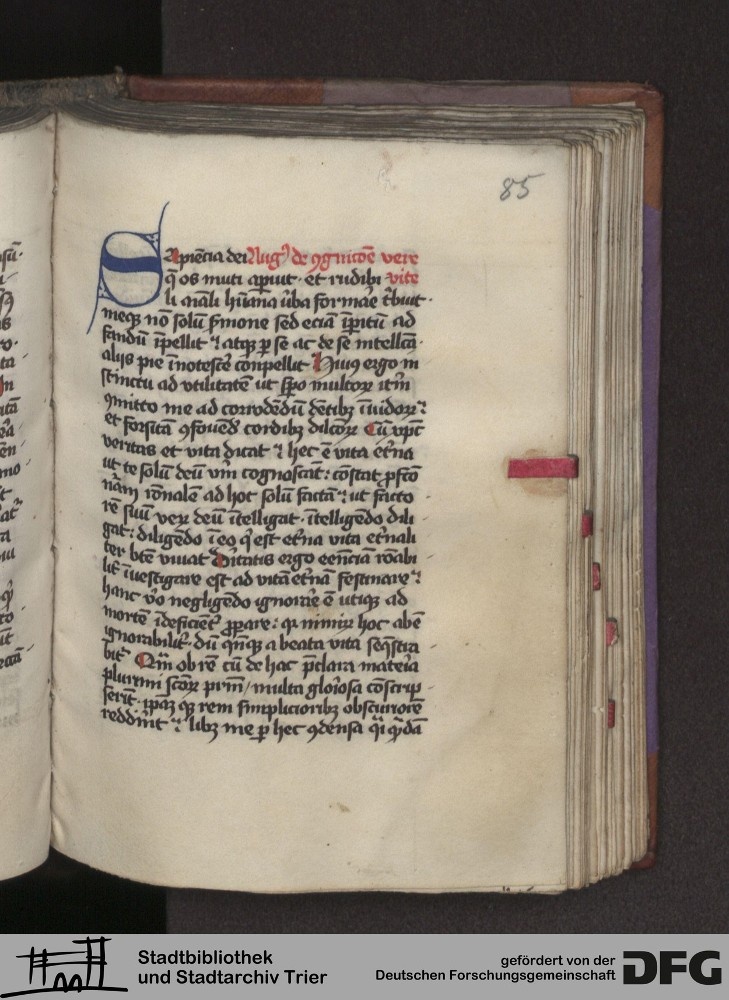 85
Sapiēcia dei Augꝰ de ꝯgnicōe vere
q̄ os muti apīut · et rudibꝫ vite
li aīali hūana ūba formāe t̄buit ·
meqꝫ nō solū ẜmone sed eciā īpitū ad
fandū īpellit ⁊ atqꝫ ꝑ se ac de se intellcā ·
aliis pie īnotesce conpellit Huiꝰ ergo in
stinctu ad vtilitatē ut ſpo multoꝝ itm̄
ꝯmitto me ad corrodēdū dētibꝫ īuidoꝝ
et forsitā ꝯfouēd cordibꝫ dilcōꝝ Cū xpc
veritas et vita dicat hec ē vita et̄na
ut te solū deū vm̄ cognoscāt : cōstat ꝓfco
nām rōnalē ad hoc solū factā ut facto
rē suū veꝝ deū ītelligat · ītelligēdo dili
gat : diligēdo ī eo qͥ est et̄na vita et̄nali
ter btē viuat Diītatis ergo eēnciā rōabi
lit̄ īuestigare est ad vitā et̄nā festinare
hanc vͦo negligēdo ignorāe ē utiqꝫ ad
mortē īdeficiēt ꝓꝑare : qꝛ nimiꝝ hoc abē
ignorabilit̄ · dū qn̄qꝫ a beata vita seq̄stra
bit̄ Qm̄ ob rē cū de hac p̄clara mateīa
plurimi scōꝝ prm̄ / multa gloīosa cōscrip
serīt · īpāqꝫ qꝫ rem simpliciorībꝫ obscuriorē
reddīnt libꝫ me ꝑ hec ꝯdensa qͥi qͥdā
Stadtbibliothek
und Stadtarchiv Trier
gefördert von der
Deutschen Forschungsgemeinschaft
DFG